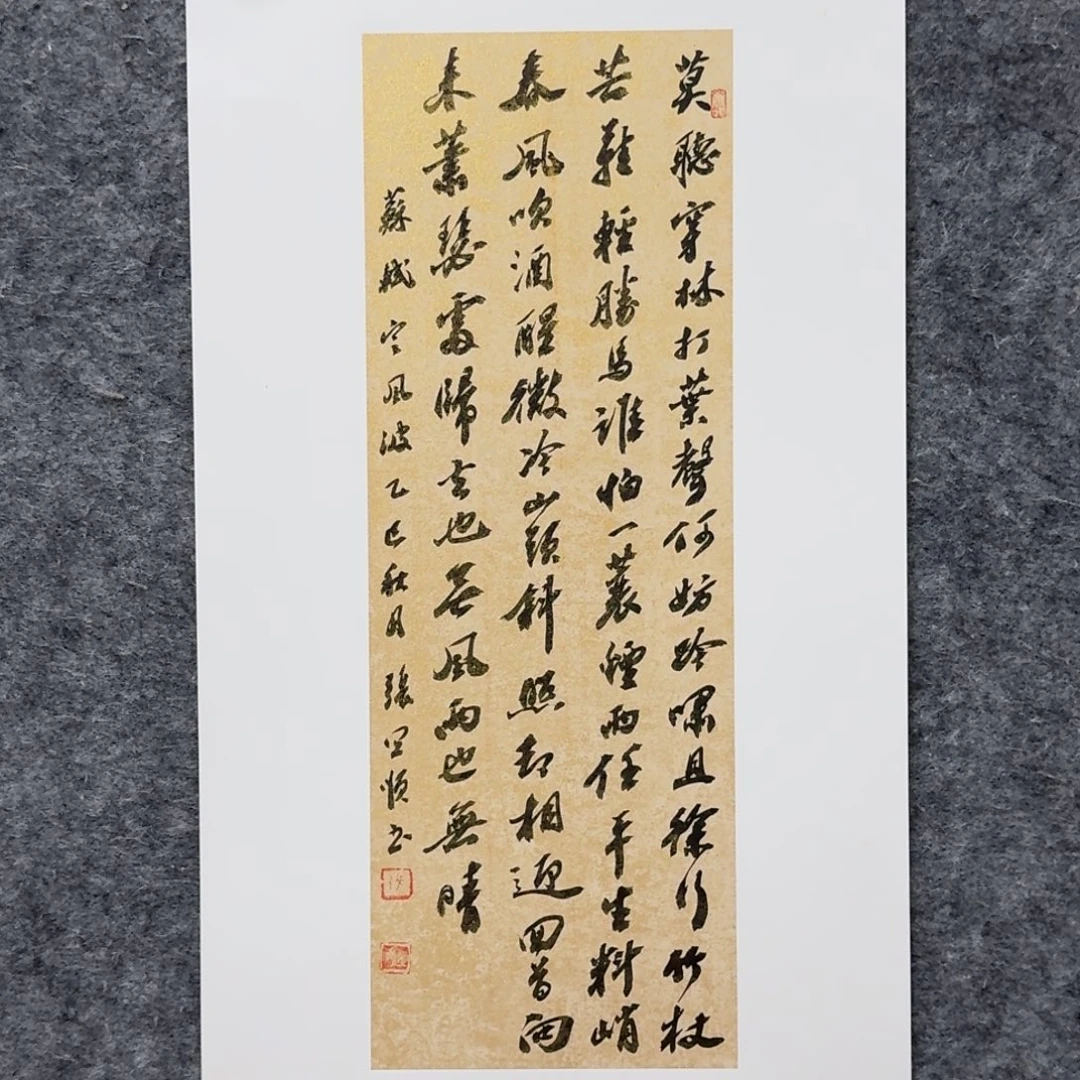 莫聽穿林打葉聲何妨吟嘯且徐行竹杖
芒鞋輕勝馬誰怕一蓑煙雨任平生料峭
春風吹酒醒微冷山頭斜照却相迎回首向
来蕭瑟處歸去也無風雨也無晴
蘇軾定風波乙巳秋月張順书